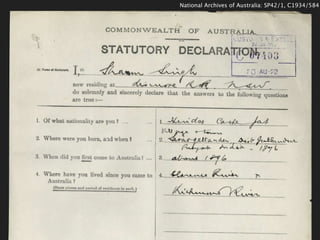 National Archives of Australia: SP42/1, C1934/584
COMMONWEALTH OF AUSTRALIA.
STATUTORY DECLARATION
C 07403
20 AUG
I, Sham Singh
now residing at Lismore NSW
do solemnly and sincerely declare that the answers to the following questions
are true:—
1. Of what nationality are you?
1 Hindoo Caste Jat
2. Where were you born, and when?
village
2 Dist Jullundur
Punjab India 1876
3. When did you first come to Australia?
3 about 1896
4. Where have you lived since you came to Australia?
4 Clarence River &
(State places and period of residence in each.)
Richmond River